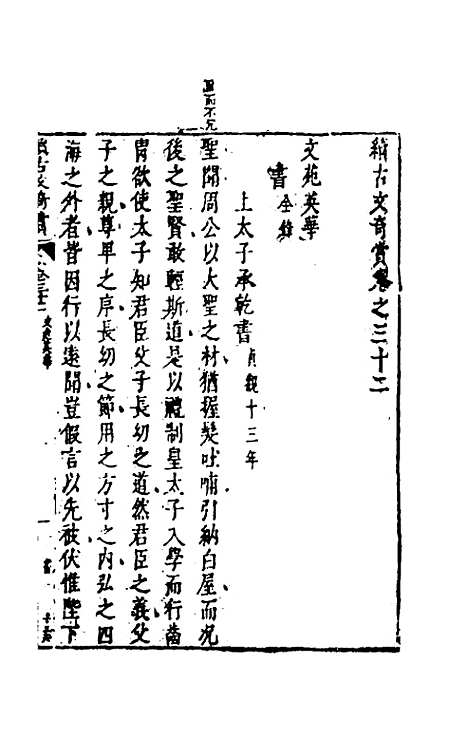 續古文奇賞卷之三十二
文苑英華
書全錄
上太子承乾書 貞觀十三年
聖聞周公以大聖之材猶握髮吐哺引納白屋而况
後之聖賢敢輕斯道是以禮制皇太子入學而行齒
胄欲使太子知君臣父子長幼之道然君臣之義父
子之親尊卑之序長幼之節用之方寸之內弘之四
海之外者皆因行以遠聞豈假言以先被伏惟陛下